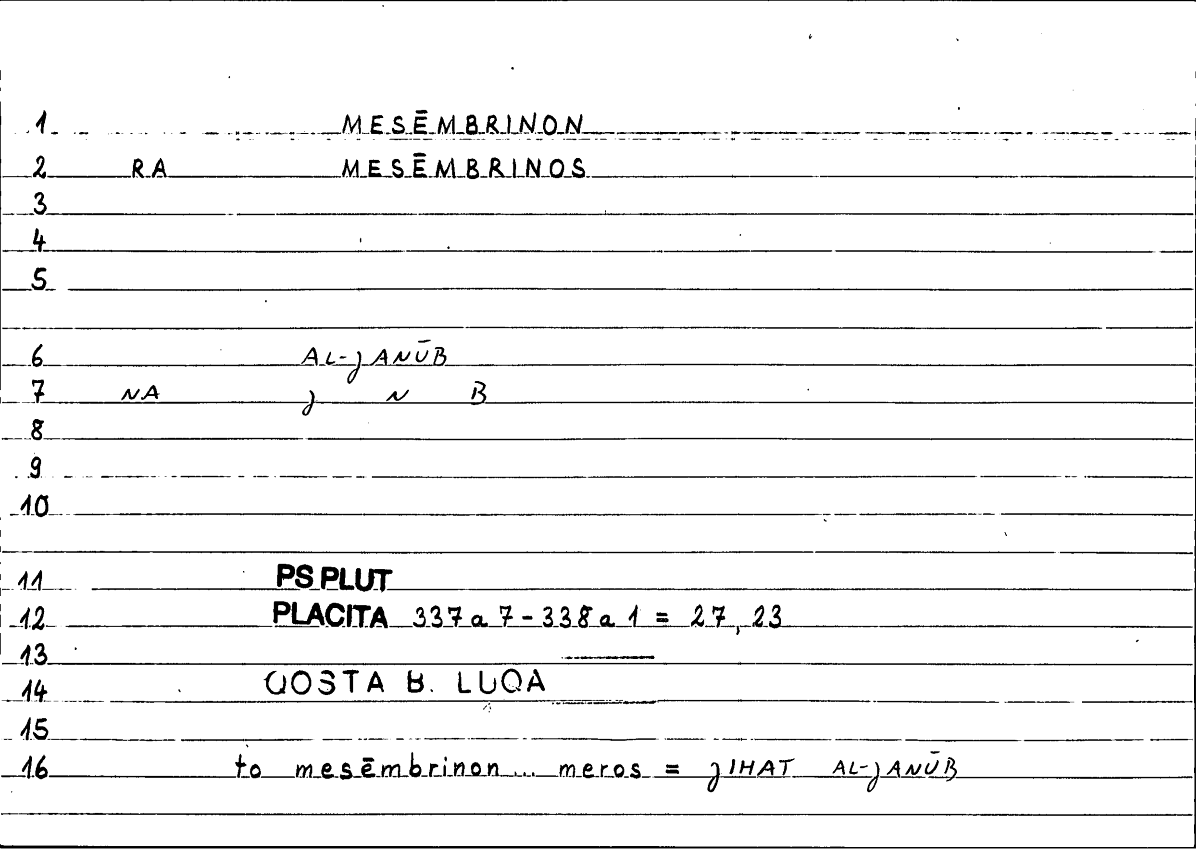 1 MESĒMBRINON
2 RA MESĒMBRINOS
3
4
5
6 AL-JANŪB
7 NA J N B
8
9
10
11 PS PLUT
12 PLACITA 337a7-338a1 = 27,23
13
14 QOSTA B. LUQA
15
16 to mesēmbrinon... meros = JIHAT AL-JANŪB